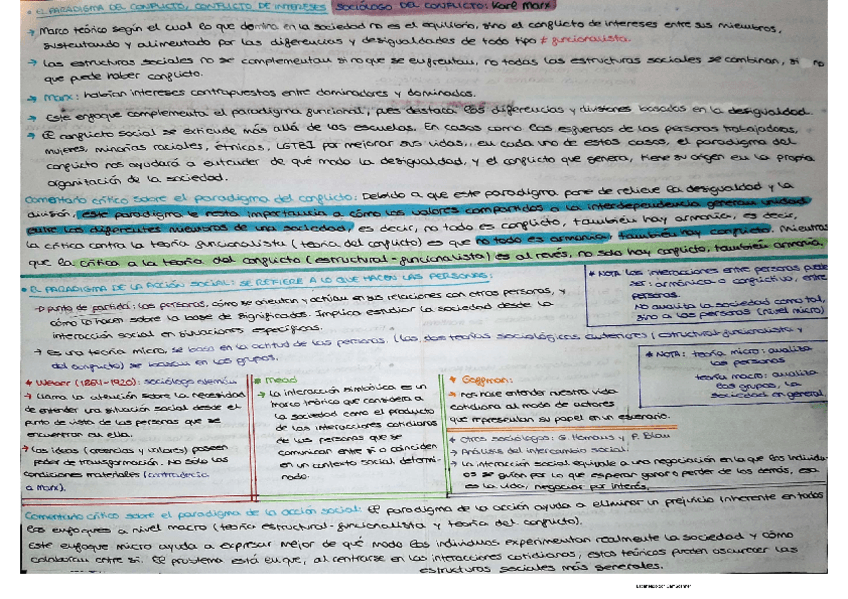 • EL PARADIGMA DEL CONFLICTO, CONFLICTO DE INTERESES SOCIÓLOGO DEL CONFLICTO: Karl Marx
→ Marco teórico según el cual lo que domina en la sociedad no es el equilibrio, sino el conflicto de intereses entre sus miembros,
sustentando y alimentado por las diferencias y desigualdades de todo tipo ≠ funcionalista.
→ Las estructuras sociales no se complementan sino que se enfrentan, no todas las estructuras sociales se combinan, si no
que puede haber conflicto.
→ Marx: habrían intereses contrapuestos entre dominadores y dominados.
→ Este enfoque complementa el paradigma funcional, pues destaca las diferencias y divisiones basadas en la desigualdad.
→ El conflicto social se extiende más allá de las escuelas. En casos como los esfuerzos de las personas trabajadoras,
mujeres, minorías raciales, étnicas, LGTBI por mejorar sus vidas, en cada uno de estos casos, el paradigma del
conflicto nos ayudará a entender de qué modo la desigualdad, y el conflicto que genera, tiene su origen en la propia
organización de la sociedad.
Comentario crítico sobre el paradigma del conflicto: Debido a que este paradigma pone de relieve la desigualdad y la
división, este paradigma le resta importancia a cómo los valores compartidos o la interdependencia generan unidad
entre los diferentes miembros de una sociedad, es decir, no todo es conflicto, también hay armonía, es decir,
la crítica contra la teoría funcionalista (teoría del conflicto) es que no todo es armonía, también hay conflicto. Mientras
que la crítica a la teoría del conflicto (estructural-funcionalista) es al revés, no solo hay conflicto, también armonía.
• EL PARADIGMA DE LA ACCIÓN SOCIAL: SE REFIERE A LO QUE HACEN LAS PERSONAS:
→ Punto de partida: las personas, cómo se orientan y actúan en sus relaciones con otras personas, y
cómo lo hacen sobre la base de significados. Implica estudiar la sociedad desde la
interacción social en situaciones específicas.
→ Es una teoría micro, se basa en la actitud de las personas. (Las dos teorías sociológicas anteriores (estructural-funcionalista y
del conflicto) se basaban en los grupos.
* NOTA las interacciones entre personas puede
ser: armónica o conflictiva, entre
personas.
No analiza la sociedad como tal,
sino a las personas (nivel micro)
* NOTA: teoría micro: analiza
las personas
teoría macro: analiza
los grupos, la
sociedad en general.
* Weber (1864-1920): sociólogo alemán
→ Llama la atención sobre la necesidad
de entender una situación social desde el
punto de vista de las personas que se
encuentran en ella.
→ Las ideas (creencias y valores) poseen
poder de transformación. No solo las
condiciones materiales (contradecía
a Marx).
* Mead
→ La interacción simbólica es un
marco teórico que considera a
la sociedad como el producto
de las interacciones cotidianas
de las personas que se
comunican entre sí o coinciden
en un contexto social determi-
nado.
* Goffman:
→ nos hace entender nuestra vida
cotidiana al modo de actores
que representan su papel en un escenario.
* Otros sociólogos: G. Homans y P. Blau
→ Análisis del intercambio social:
→ La interacción social equivale a una negociación en la que los individu-
os se guían por lo que esperan ganar o perder de los demás, esa
es la vida, negociar por interés.
Comentario crítico sobre el paradigma de la acción social: El paradigma de la acción ayuda a eliminar un prejuicio inherente en todos
los enfoques a nivel macro (teoría estructural-funcionalista y teoría del conflicto).
Este enfoque micro ayuda a expresar mejor de qué modo los individuos experimentan realmente la sociedad y cómo
colaboran entre sí. El problema está en que, al centrarse en las interacciones cotidianas, estos teóricos pueden oscurecer las
estructuras sociales más generales.
Escaneado con CamScanner